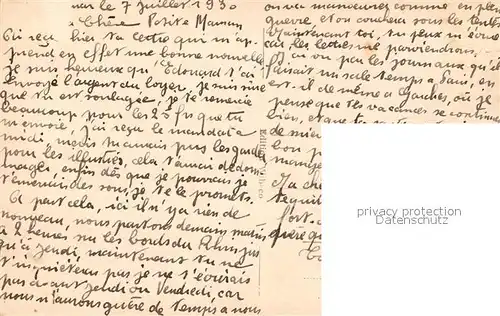 le 7 juillet 1930
Chère Petite Maman
J'ai reçu hier ta lettre qui m'ap-
prend en effet une bonne nouvelle
Je suis heureux qu'Edouard t'ai
envoyé l'argent du loyer, je suis sûr
que tu es soulagée, je te remercie
beaucoup pour les 25 frs que tu
m'envoie, j'ai reçu le mandat à
midi, merci maman pour les
pour les illustrés, cela t'aurai dédom
mager, enfin dès que je pourrais je
t'emmerais des sous, je te le promets.
A part cela, ici il n'y a rien de
nouveau, nous partons demain matin
à 2 heures sur les bords du Rhin jus
qu'à jeudi, maintenant tu ne
t'inquièteras pas je ne t'écrirais
pas avant jeudi ou Vendredi, car
nous n'aurons guère de temps à nous
on va manoeuvrer comme en plein
guerre, et on couchera sous les tentes
Maintenant toi, tu peux m'écrire
car les lettres me parviendrons,
J'ai vu par les journaux qu'il
faisait un sale temps à Paris, en
est-il de même à où je
pense que tes vacances se continuent
bien, et que tu
de mie
bon p
mange
J'ai che
tequil
fort.
guère q
privacy protection
Datenschutz